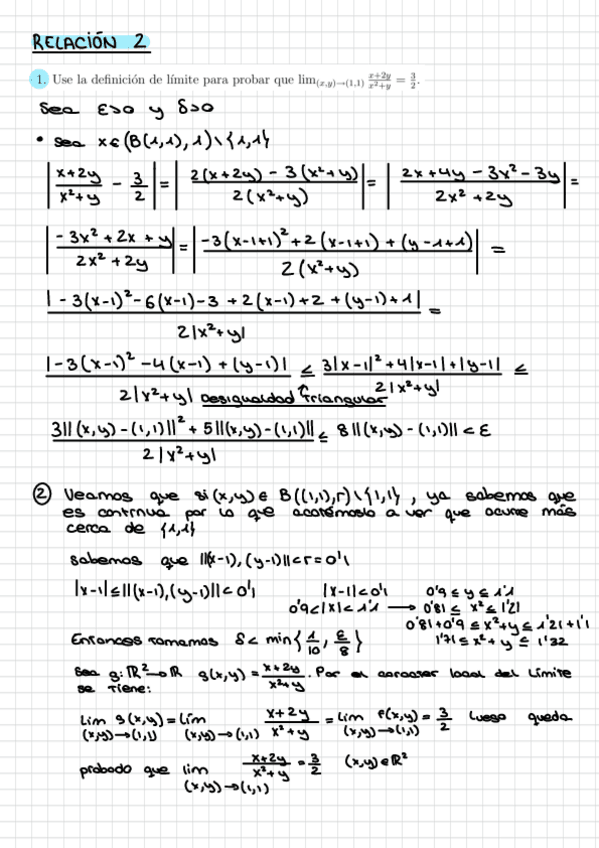 RELACIÓN 2
1. Use la definición de límite para probar que lim_{(x,y)→(1,1)} \frac{x+2y}{x²+y} = \frac{3}{2}.
Sea ε>0 y δ>0
• Sea x∈(B(1,1),1)\{1,1}
|\frac{x+2y}{x²+y} - \frac{3}{2}| = |\frac{2(x+2y) - 3(x²+y)}{2(x²+y)}| = |\frac{2x+4y-3x²-3y}{2x²+2y}| =
|\frac{-3x²+2x+y}{2x²+2y}| = |\frac{-3(x-1+1)²+2(x-1+1)+(y-1+1)}{2(x²+y)}| =
\frac{|-3(x-1)²-6(x-1)-3+2(x-1)+2+(y-1)+1|}{2|x²+y|} =
\frac{|-3(x-1)²-4(x-1)+(y-1)|}{2|x²+y|} ≤ \frac{3|x-1|²+4|x-1|+|y-1|}{2|x²+y|} ≤
Desigualdad triangular
\frac{3||(x,y)-(1,1)||²+5||(x,y)-(1,1)||}{2|x²+y|} ≤ 8||(x,y)-(1,1)|| < ε
② Veamos que si (x,y)∈ B((1,1),r)\{1,1}, ya sabemos que
es continua por lo que acotémoslo a ver que ocurre más
cerca de {1,1}
Sabemos que ||(x-1),(y-1)||<r=0'1
|x-1|≤||(x-1),(y-1)||<0'1 |x-1|<0'1 0'9≤y≤1'1
0'9<|x|<1'1 → 0'81≤x²≤1'21
0'81+0'9≤x²+y≤1'21+1'1
1'71≤x²+y≤1'32
Entonces tomamos δ< min{\frac{1}{10}, \frac{ε}{8}}
Sea g:ℝ²→ℝ g(x,y)=\frac{x+2y}{x²+y}. Por el caracter local del límite
se tiene:
Lim g(x,y)=Lim \frac{x+2y}{x²+y} = Lim f(x,y)=\frac{3}{2} luego queda
(x,y)→(1,1) (x,y)→(1,1) (x,y)→(1,1)
probado que lim \frac{x+2y}{x²+y}=\frac{3}{2} (x,y)∈ℝ²
(x,y)→(1,1)